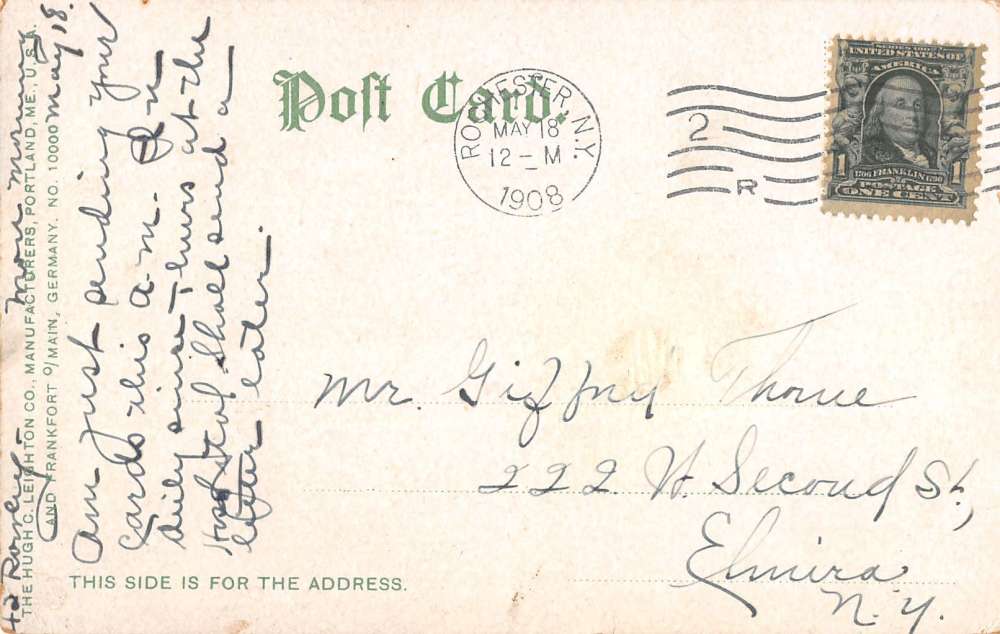 Mon morning
May 18.
Am just sending your
cards this a.m. In
daily since Thurs at the
Hospital Shall send a
letter later.
THE HUGH C. LEIGHTON CO., MANUFACTURERS, PORTLAND, ME., U.S.A.
AND FRANKFORT O/MAIN, GERMANY. NO. 10000
Post Card.
ROCHESTER, N.Y.
MAY 18
12-M
1908
2
R
SERIES 1902
UNITED STATES OF
AMERICA
1 1
1706 FRANKLIN 1790
POSTAGE
ONE CENT
Mr. Thorne
222 W Second St,
Elmira
N.Y.
THIS SIDE IS FOR THE ADDRESS.